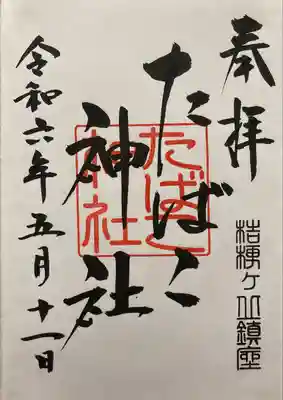 奉拝
桔梗ヶ丘鎮座
たばこ
神社
たばこ
神社
令和六年五月十一日